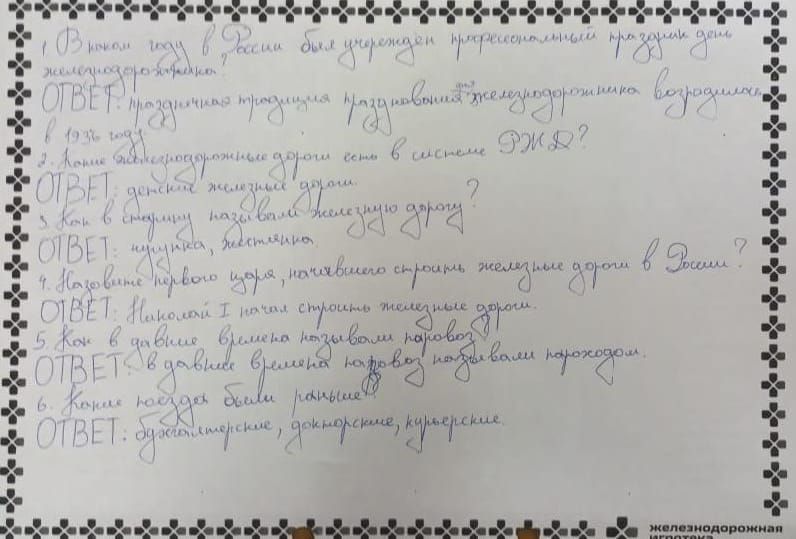 1. В каком году в России был учережден профессиональный праздник день
железнодорожника?
ОТВЕТ: праздничная традиция празднования дня железнодорожника возродилась
в 1936 году.
2. Какие железнодорожные дороги есть в системе РЖД?
ОТВЕТ: детские железные дороги.
3. Как в старину называли железную дорогу?
ОТВЕТ: чугунка, жестянка.
4. Назовите первого царя, начавшего строить железные дороги в России?
ОТВЕТ: Николай I начал строить железные дороги.
5. Как в давние времена называли паровоз?
ОТВЕТ: в давние времена паровоз называли пароходом.
6. Какие поезда были раньше?
ОТВЕТ: бухгалтерские, докторские, курьерские.
железнодорожная
игротека